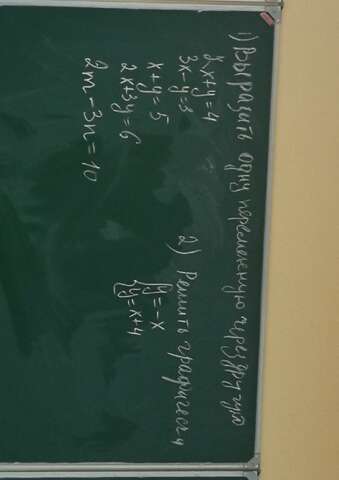 1) Выразить одну переменную через другую
2x+y=4
3x-y=8
x+y=5
2x+3y=6
2m-3n=10
2) Решить графически
{y=-x
{y=x+4